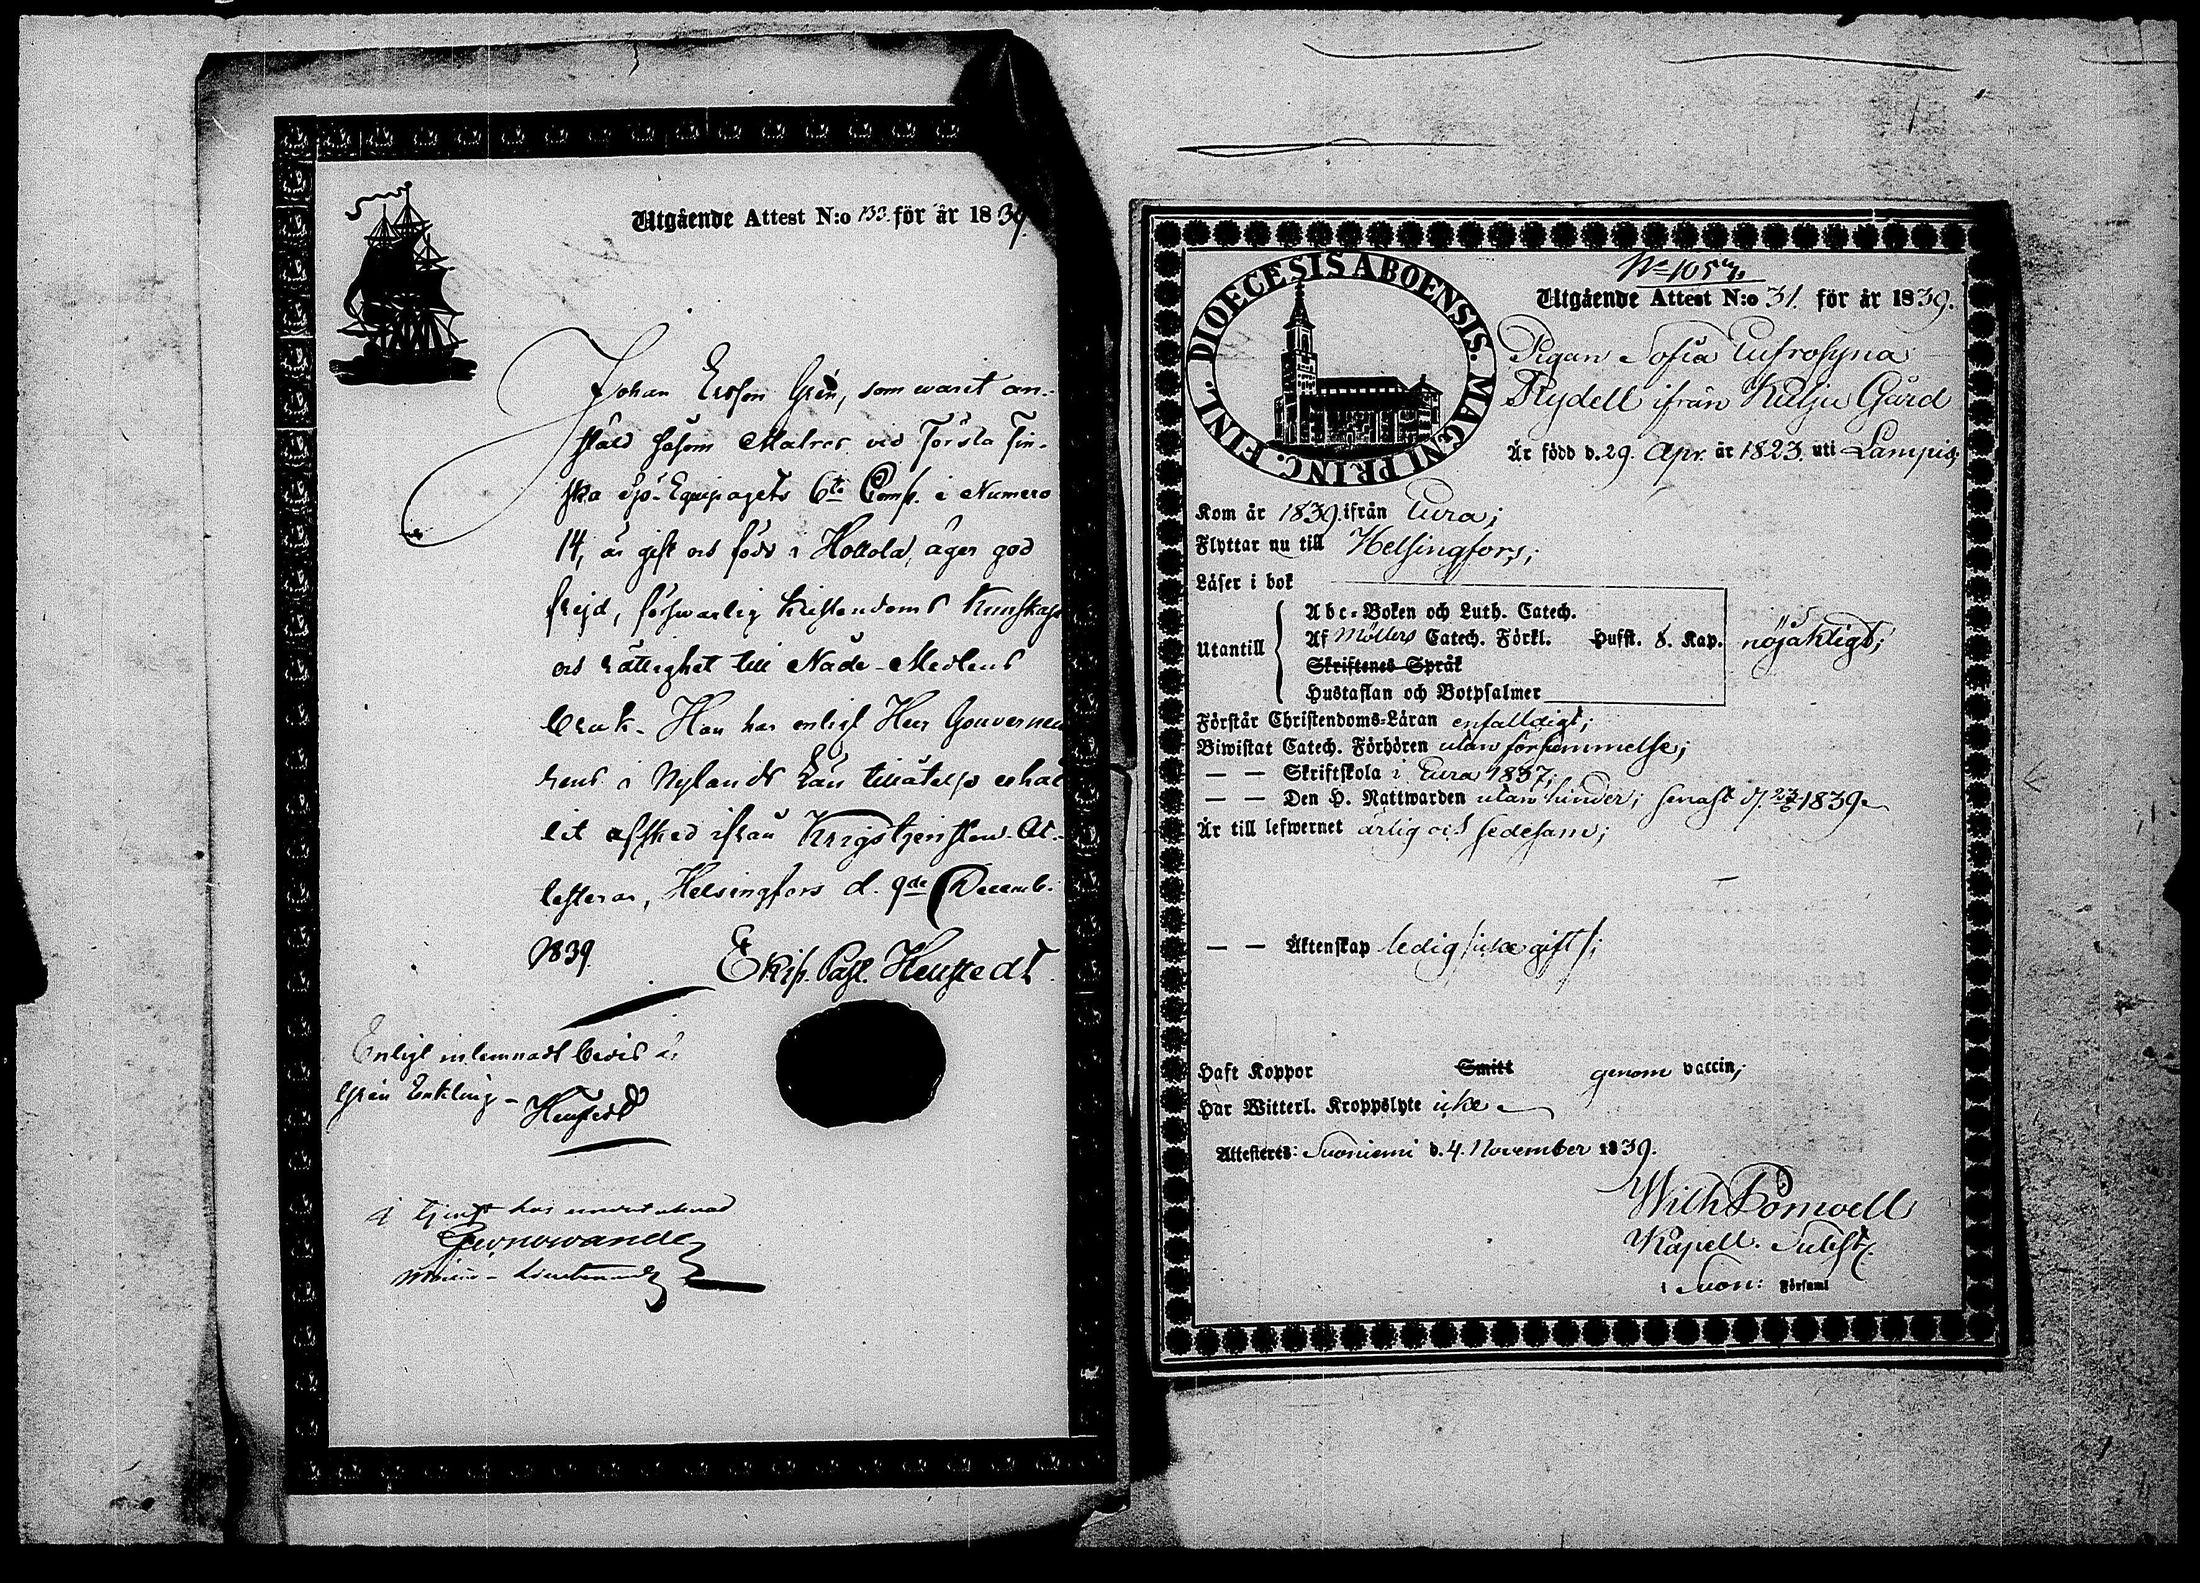 Utgående Attest N:o 133. för år 1839.
Johan Ersson Grén, som warit an-
stäld såsom Matros vid Första Fin-
ska Sjö-Equipagets 6te Comp. i Numero
14, är gift och född i Hollola, äger god
frejd, förswarlig Kristendoms Kunskap
och rättighet till Nåde-Medlens
bruk. Han har enligt Herr Gouverneu
rens i Nylands Län tillåtelse erhål
lit afsked ifrån Krigstjensten. At-
testeras, Helsingfors d. 9de Decemb.
1839.
Ekip. Past. Henstedt
Enligt inlemnadt bevis är
Grén Enkling -
Henstedt
DIOECESIS ABOENSIS. MAGNI PRINC. FINL.
N:o 105
Utgående Attest N:o 31. för år 1839.
Pigan Sofia Eufrosyna
Rydell ifrån Kulju Gård
Är född d. 29. Apr. år 1823. uti Lampis;
Kom år 1839. ifrån Eura;
Flyttar nu till Helsingfors;
Läser i bok
Utantill
Abc-Boken och Luth. Catech.
Af Möllers Catech. Förkl. Hufst. 8. Kap. nöjaktigt;
Skriftenes Språk
Hustaflan och Botpsalmer
Förstår Christendoms-Läran enfaldigt;
Biwistat Catech. Förhören utan försummelse;
— — Skriftskola i Eura 1837;
— — Den H. Nattwarden utan hinder; senast d. 23/6 1839
Är till lefwernet ärlig och sedesam;
— — Äktenskap ledig icke gift;
Haft Koppor Smitt genom vaccin;
Har Witterl. Kroppslyte icke
Attesteres: Suoniemi d. 4. November 1839.
Wilh Ponwell
Kapell. Subst.
i Suon: Förſaml